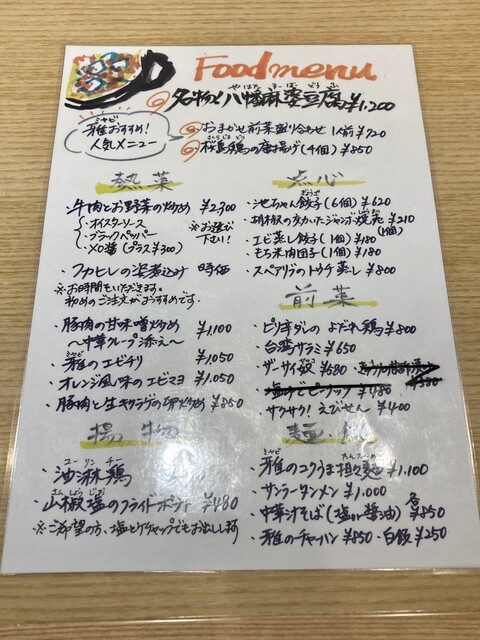 Food menu
やはた まーぼ どうふ
名代っと八幡麻婆豆腐 ¥1,200
ミヤビ
雅おすすめ!
人気メニュー
おまかせ前菜盛り合わせ 1人前 ¥720
桜島鶏の唐揚げ(4個) ¥850
熱菜
牛肉とお野菜の炒め ¥2,300
・オイスターソース
・ブラックペパー
・XO醬(プラス¥300)
※お選び下さい!
・フカヒレの姿煮込み 時価
※お時間もいただきます。
初めのご注文がおすすめです。
・豚肉の甘味噌炒め ¥1,100
〜中華クレープ添え〜
ミヤビ
・雅のエビチリ ¥1,050
・オレンジ風味のエビマヨ ¥1,050
・豚肉と生キクラゲの卵炒め ¥850
揚物
ユーリンチー
・油淋鶏
さんしょうじお
・山椒塩のフライドポテト ¥480
※ご希望の方、塩とケチャップでもお出しします
点心
ぎょうざ
・池ちゃん餃子(6個) ¥620
・胡椒の効いたジャンボ焼売 ¥210
(1個)
・エビ蒸し餃子(1個) ¥180
・もち米肉団子(1個) ¥180
・スペアリブのトウチ蒸し ¥800
前菜
・ピリ辛ダレのよだれ鶏 ¥800
・台湾サラミ ¥650
・ザーサイ ¥680
・塩ゆでピーナッツ ¥480
・サクサク!えびせん ¥400
麺・飯
ミヤビ たんたんめん
・雅のコクうま担々麺 ¥1,100
・サンラータンメン ¥1,000
・中華汁そば(塩or醤油) 各¥850
・雅のチャーハン ¥850 ・白飯 ¥250